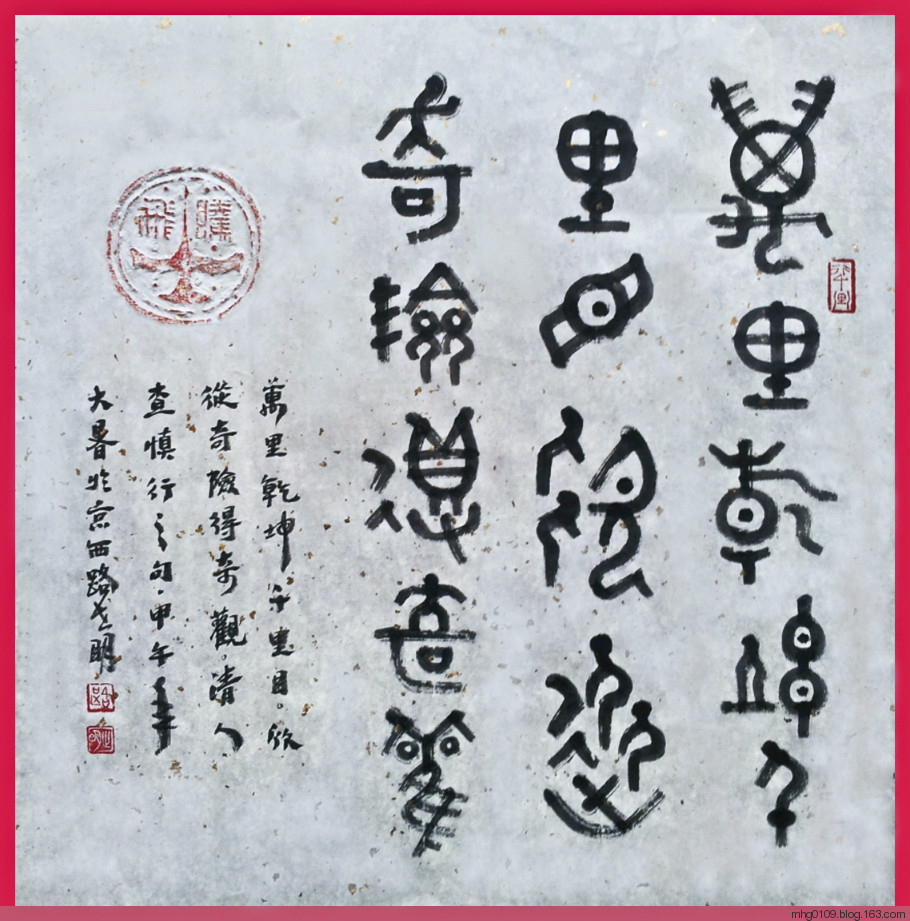 萬里乾坤千
里目欣從
奇險得奇觀
騰飛
萬里乾坤千里目。欣
從奇險得奇觀。清人
查慎行之句。甲午年
大暑於京西路志明
mhg0109.blog.163.com